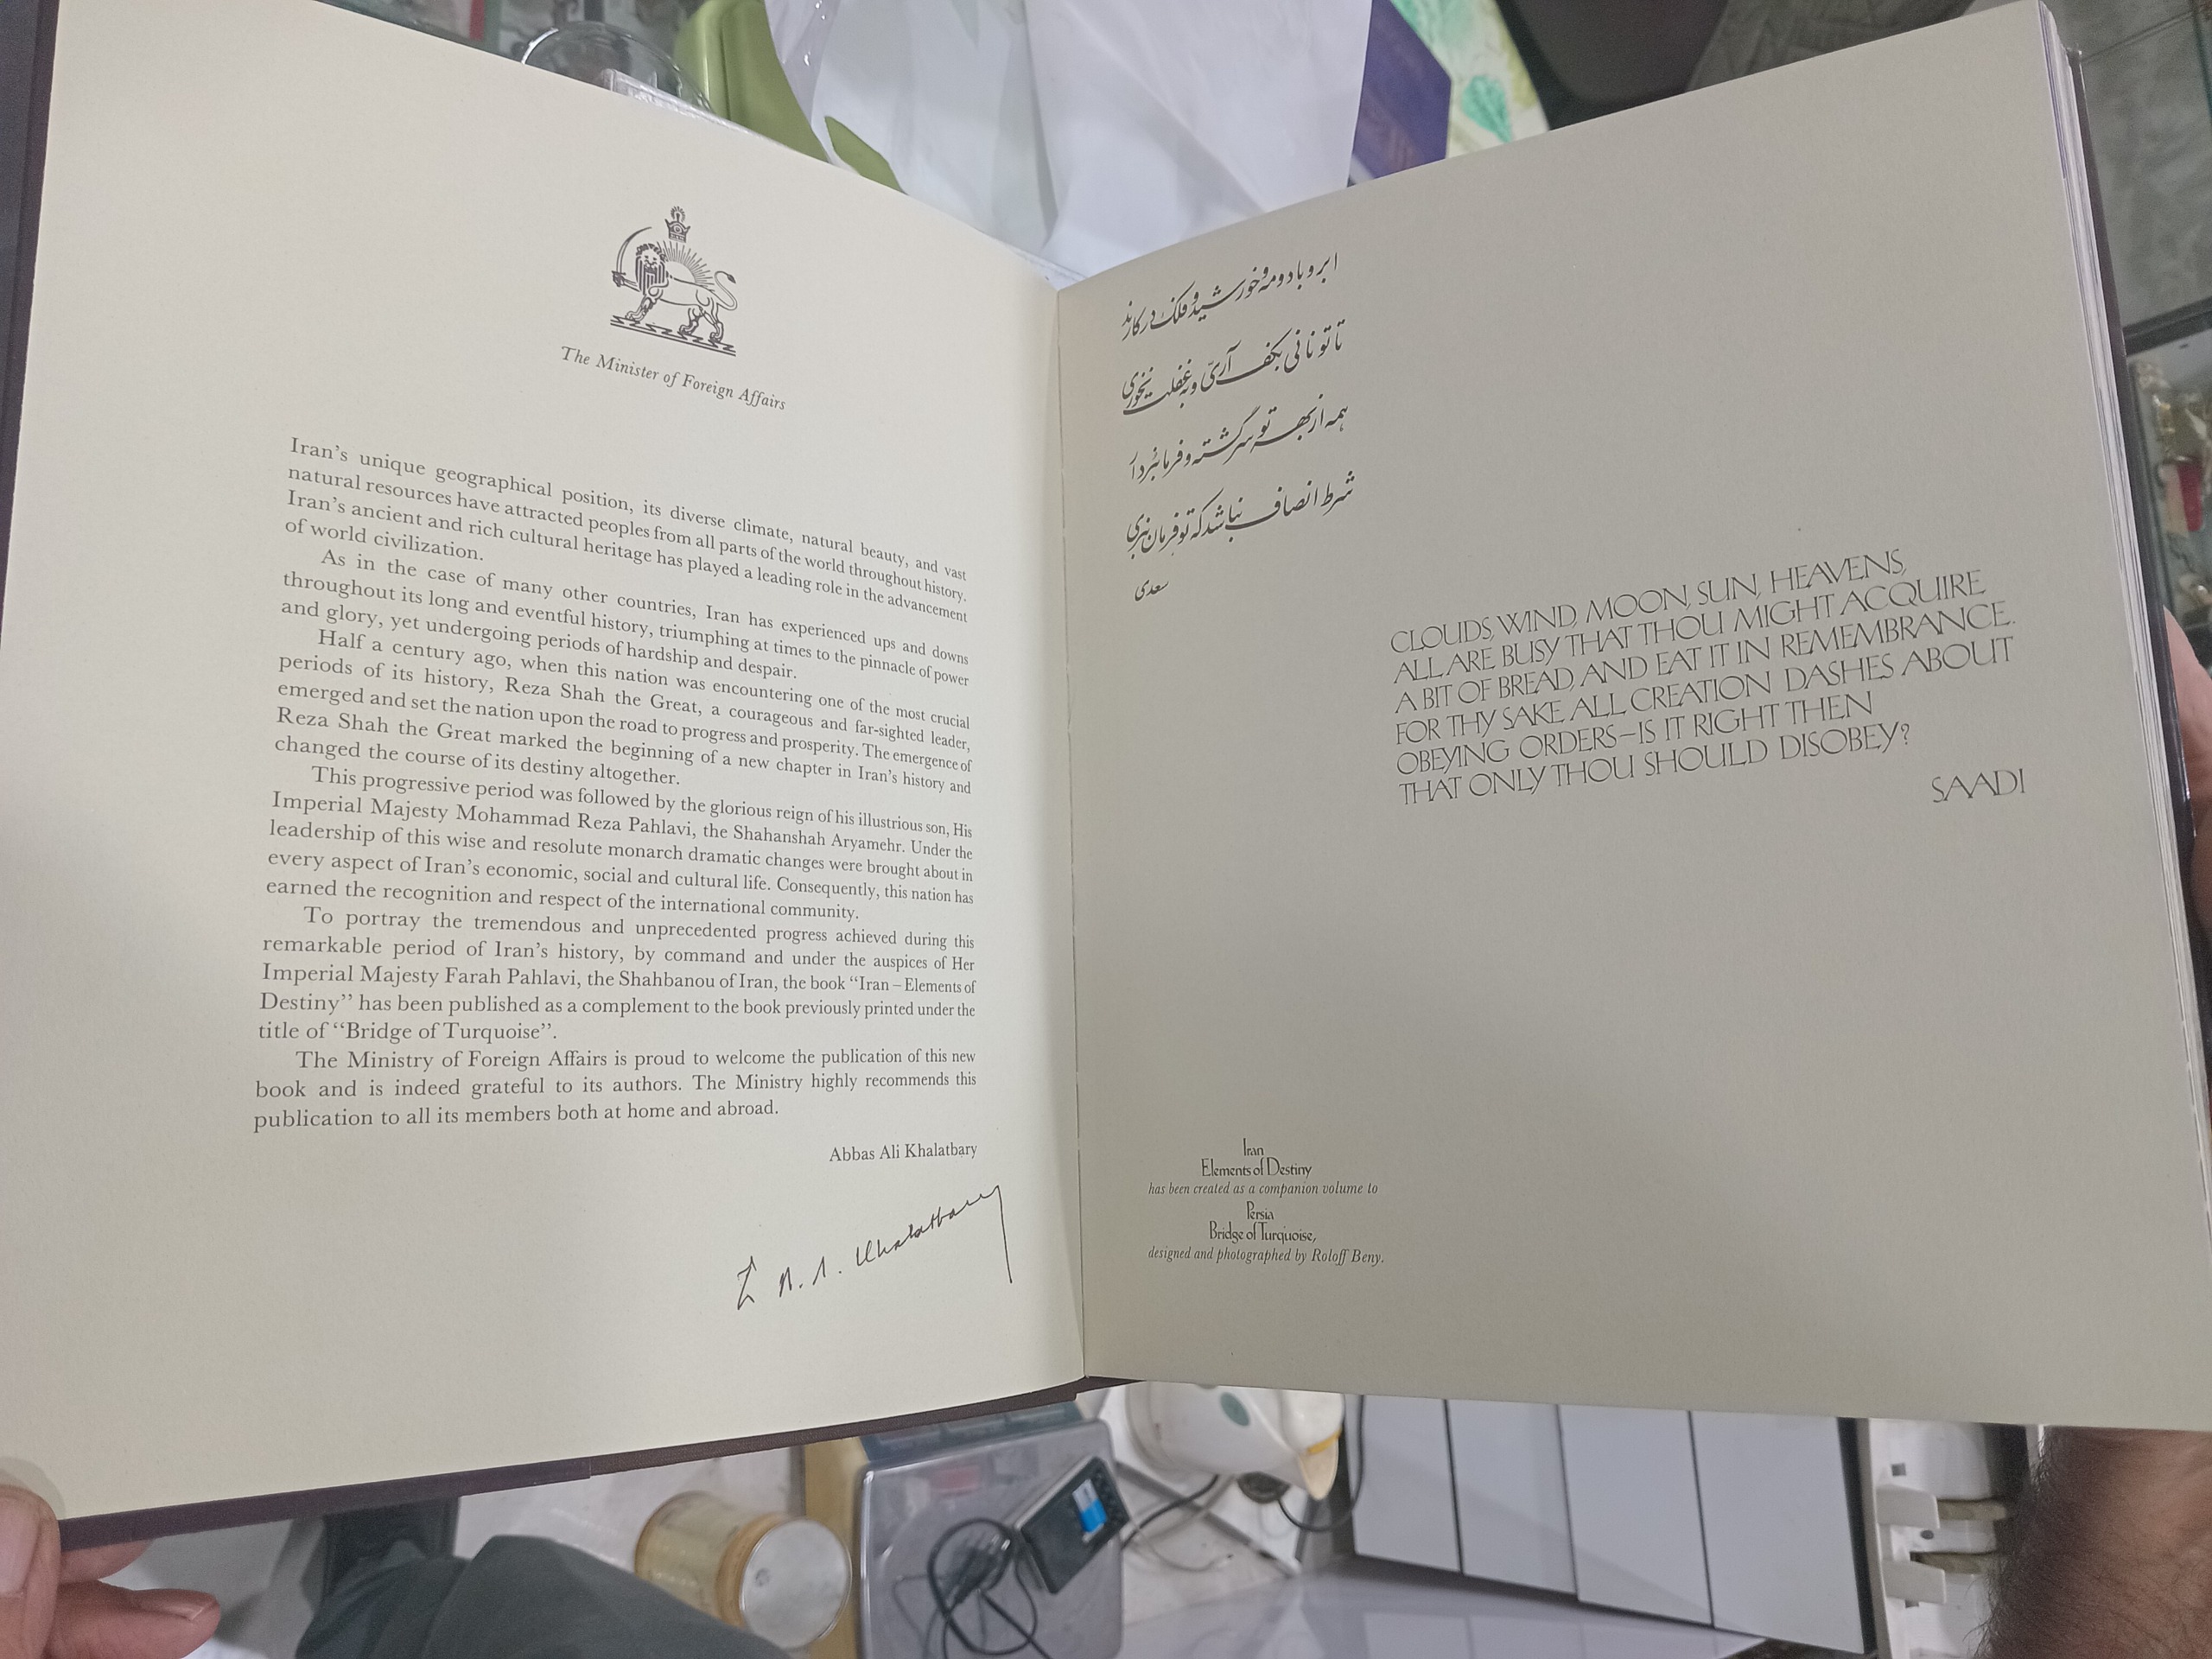 The Minister of Foreign Affairs
Iran's unique geographical position, its diverse climate, natural beauty, and vast
natural resources have attracted peoples from all parts of the world throughout history.
Iran's ancient and rich cultural heritage has played a leading role in the advancement
of world civilization.
As in the case of many other countries, Iran has experienced ups and downs
throughout its long and eventful history, triumphing at times to the pinnacle of power
and glory, yet undergoing periods of hardship and despair.
Half a century ago, when this nation was encountering one of the most crucial
periods of its history, Reza Shah the Great, a courageous and far-sighted leader,
emerged and set the nation upon the road to progress and prosperity. The emergence of
Reza Shah the Great marked the beginning of a new chapter in Iran's history and
changed the course of its destiny altogether.
This progressive period was followed by the glorious reign of his illustrious son, His
Imperial Majesty Mohammad Reza Pahlavi, the Shahanshah Aryamehr. Under the
leadership of this wise and resolute monarch dramatic changes were brought about in
every aspect of Iran's economic, social and cultural life. Consequently, this nation has
earned the recognition and respect of the international community.
To portray the tremendous and unprecedented progress achieved during this
remarkable period of Iran's history, by command and under the auspices of Her
Imperial Majesty Farah Pahlavi, the Shahbanou of Iran, the book "Iran – Elements of
Destiny" has been published as a complement to the book previously printed under the
title of "Bridge of Turquoise".
The Ministry of Foreign Affairs is proud to welcome the publication of this new
book and is indeed grateful to its authors. The Ministry highly recommends this
publication to all its members both at home and abroad.
Abbas Ali Khalatbary
A. A. Khalatbary
ابر و باد و مه و خورشید و فلک در کارند
تا تو نانی بکف آری و به غفلت نخوری
همه از بهر تو سرگشته و فرمانبردار
شرط انصاف نباشد که تو فرمان نبری
سعدی
CLOUDS, WIND, MOON, SUN, HEAVENS,
ALL ARE BUSY THAT THOU MIGHT ACQUIRE
A BIT OF BREAD, AND EAT IT IN REMEMBRANCE.
FOR THY SAKE ALL CREATION DASHES ABOUT
OBEYING ORDERS–IS IT RIGHT THEN
THAT ONLY THOU SHOULD DISOBEY?
SAADI
Iran
Elements of Destiny
has been created as a companion volume to
Persia
Bridge of Turquoise,
designed and photographed by Roloff Beny.